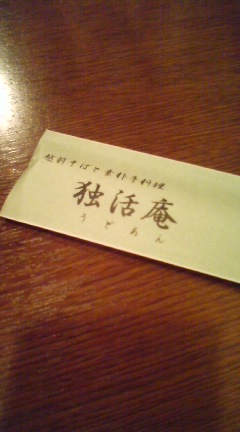 越前そばと素朴な料理
独活庵
うどあん